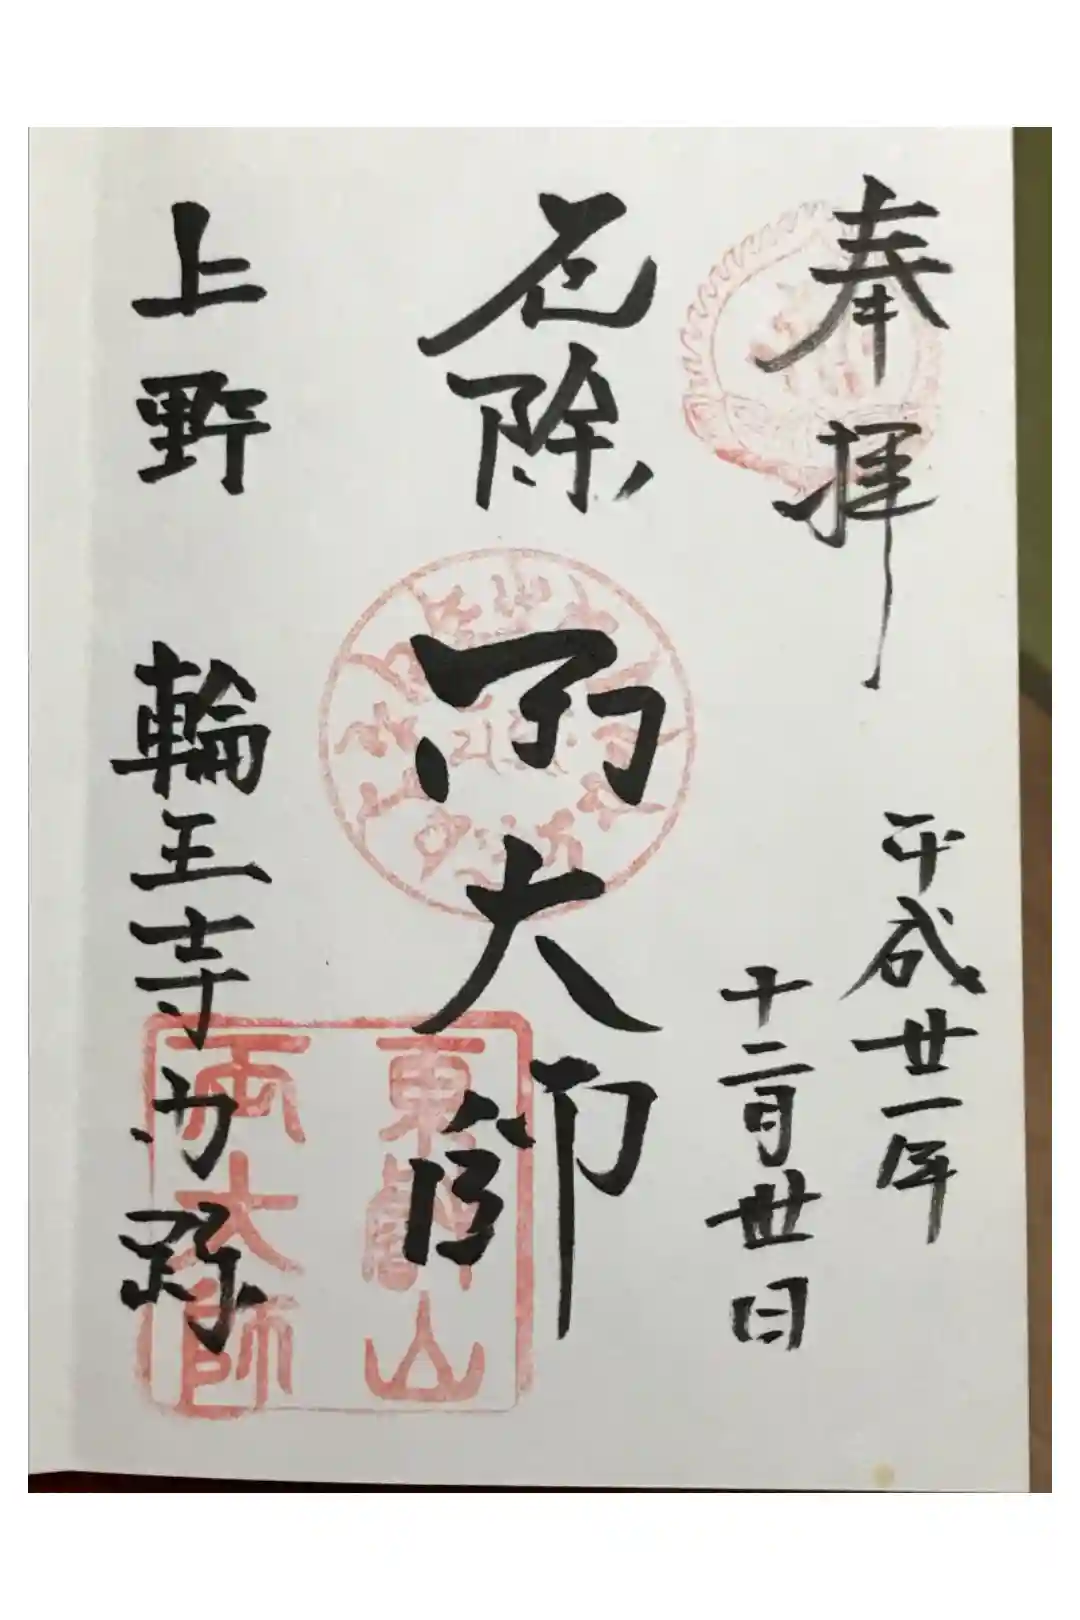 奉拝
平成廿一年
十二月丗日
厄除
両大師
上野 輪王寺門跡
東叡山
両大師